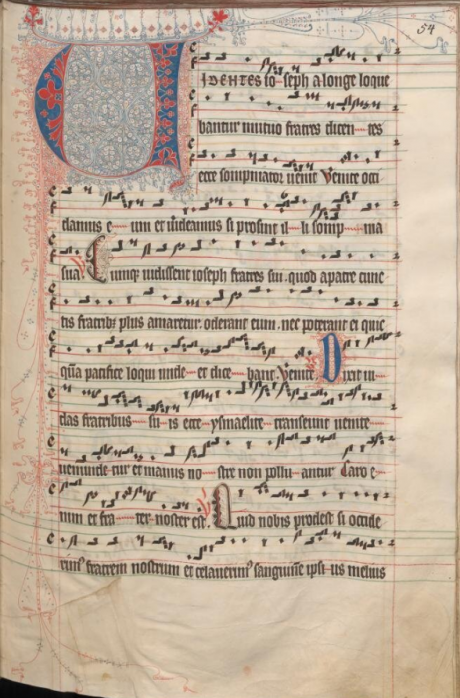 54
VIDENTES io---seph a longe loque
bantur mutuo fratres dicen---tes
ecce sompniator uenit Venite occi
damus e---um et uideamus si prosint il---li somp---nia
sua Cunq; uidissent ioseph fratres sui. quod a patre cunc
tis fratrib; plus amaretur. oderant eum. nec poterant ei quic
q̄ua pacifice loqui unde---et dice---bant. Venite Dixit iu
das fratribus---su---is ecce---ysmaelite---transeunt uenite
uenunde-tur et manus no---stre non pollu---antur Caro e
nim et fra---ter noster est. Quid nobis prodest si occide
rim⁹ fratrem nostrum et celauerim⁹ sanguinē ipsi-us melius